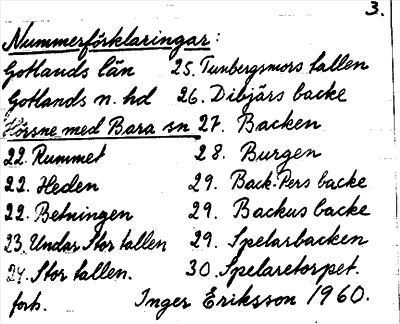 3.
Nummerförklaringar:
Gotlands län 25. Tunbergsmors tallen
Gotlands n. hd 26. Dibjärs backe
Hörsne med Bara sn 27. Backen
22. Rummet 28. Burgen
22. Heden 29. Back-Pers backe
22. Betningen 29. Backus backe
23. Undar Stor tallen 29. Spelarbacken
24. Stor tallen. 30. Spelaretorpet.
forts. Inger Eriksson 1960.